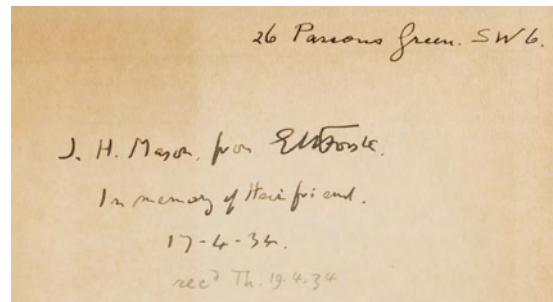 26 Parsons Green. SW6.
J. H. Mason, from EMForster.
In memory of their friend.
17-4-34.
recd Th. 19.4.34